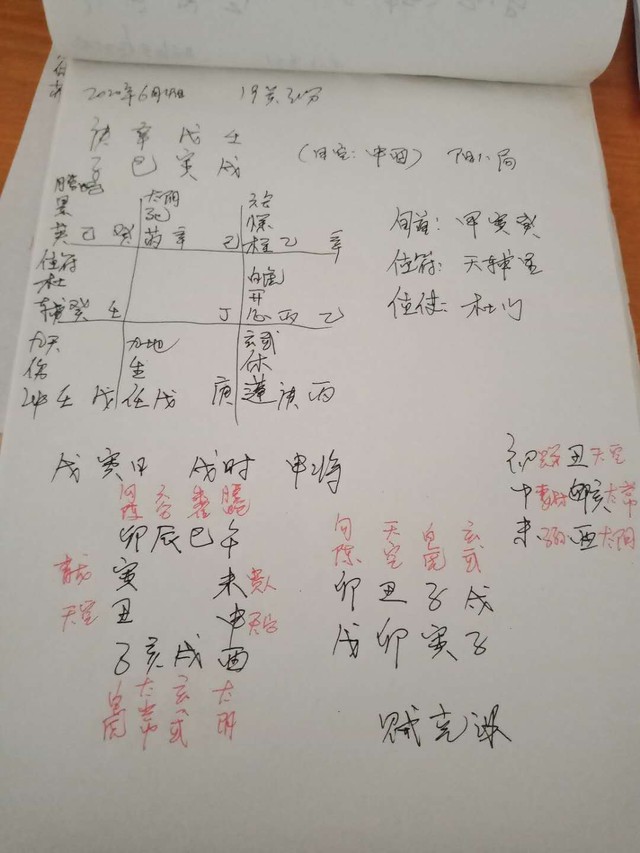 2020年6月 日 19点 分
庚 辛 戊 壬
子 巳 寅 戌 (日空: 申酉)
螣蛇 太阴 六合
景 死
英 己 癸 芮 辛 己 柱 乙 辛
值符 白虎
杜 开
辅癸 壬 丁 心丙 乙
九天 九地 玄武
伤 生 休
冲 壬 戊 任戊 庚 蓬庚 丙
旬首: 甲寅癸
值符: 天辅星
值使: 杜门
戊寅日 戌时 申将
初 丑天空
中 亥太常
末 酉太阴
卯辰巳午
青龙 寅 未 贵人
天空 丑 申
子亥戌酉
白虎 太常 玄武 太阴
勾陈 天空 白虎 玄武
卯 丑 子 戌
戊 卯 寅 子
贼克课